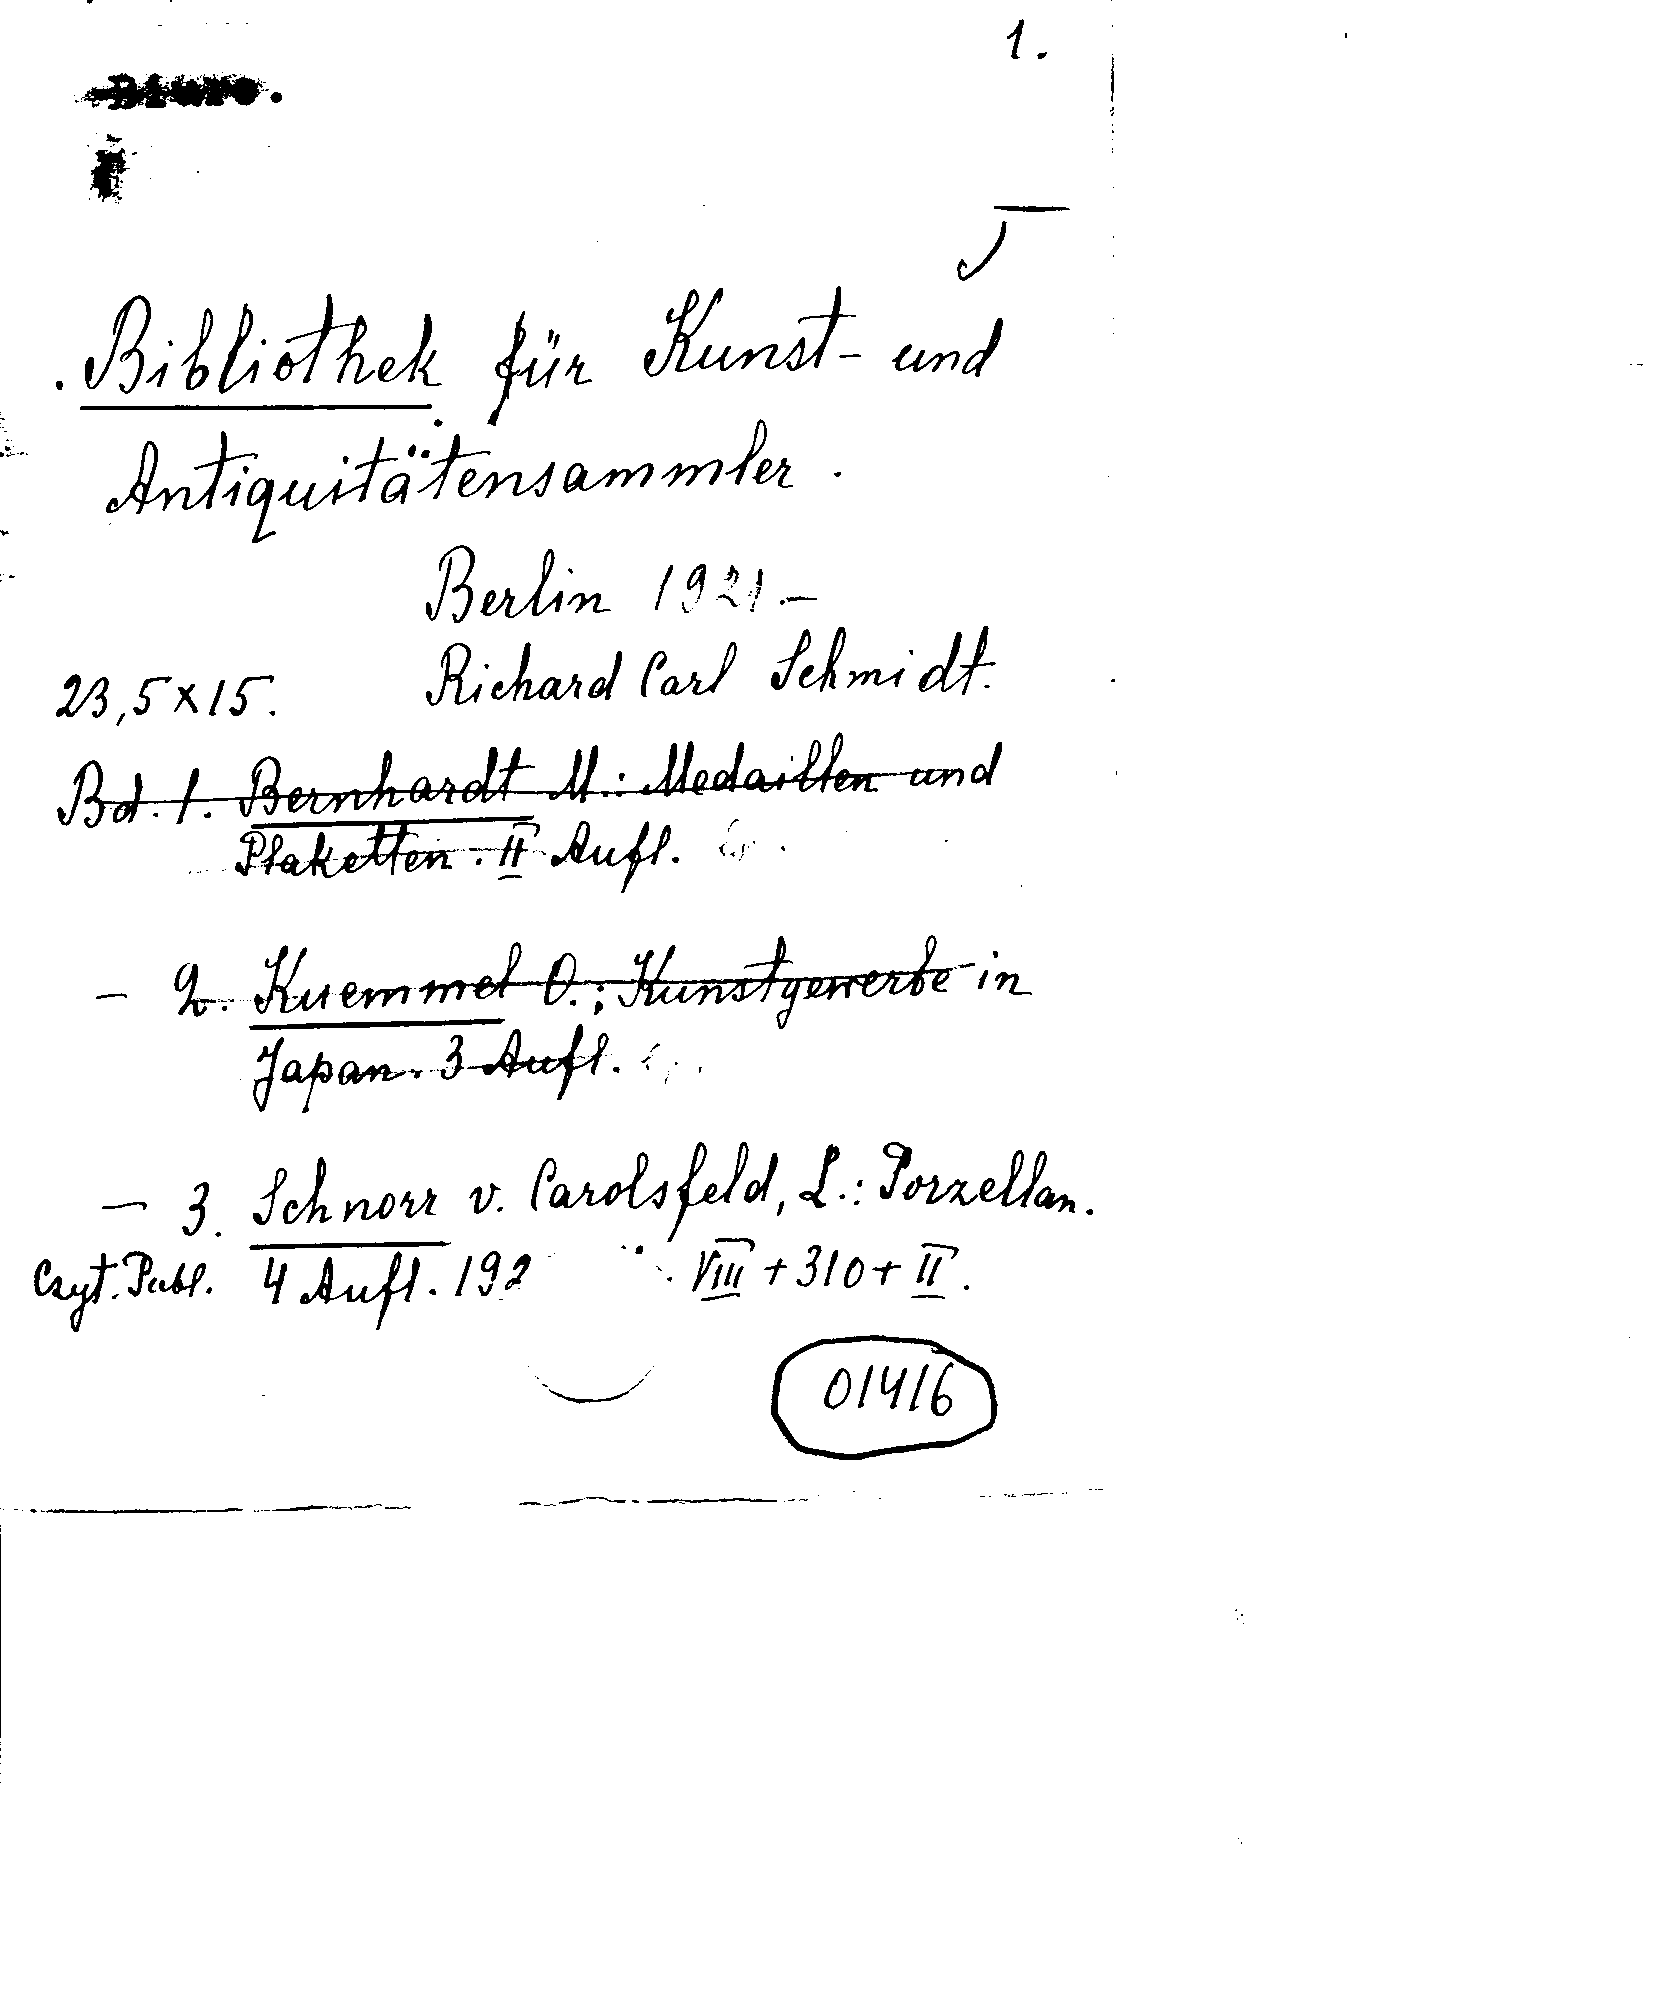 1.
Biuro.
Bibliothek für Kunst- und
Antiquitätensammler.
Berlin 1921.—
23,5×15. Richard Carl Schmidt.
Bd. 1. Bernhardt M.: Medaillen und
Plaketten. II Aufl.
— 2. Kuemmel O.: Kunstgewerbe in
Japan. 3 Aufl.
— 3. Schnorr v. Carolsfeld, L.: Porzellan.
Czyt. Publ. 4 Aufl. 192 VIII + 310 + II.
01416